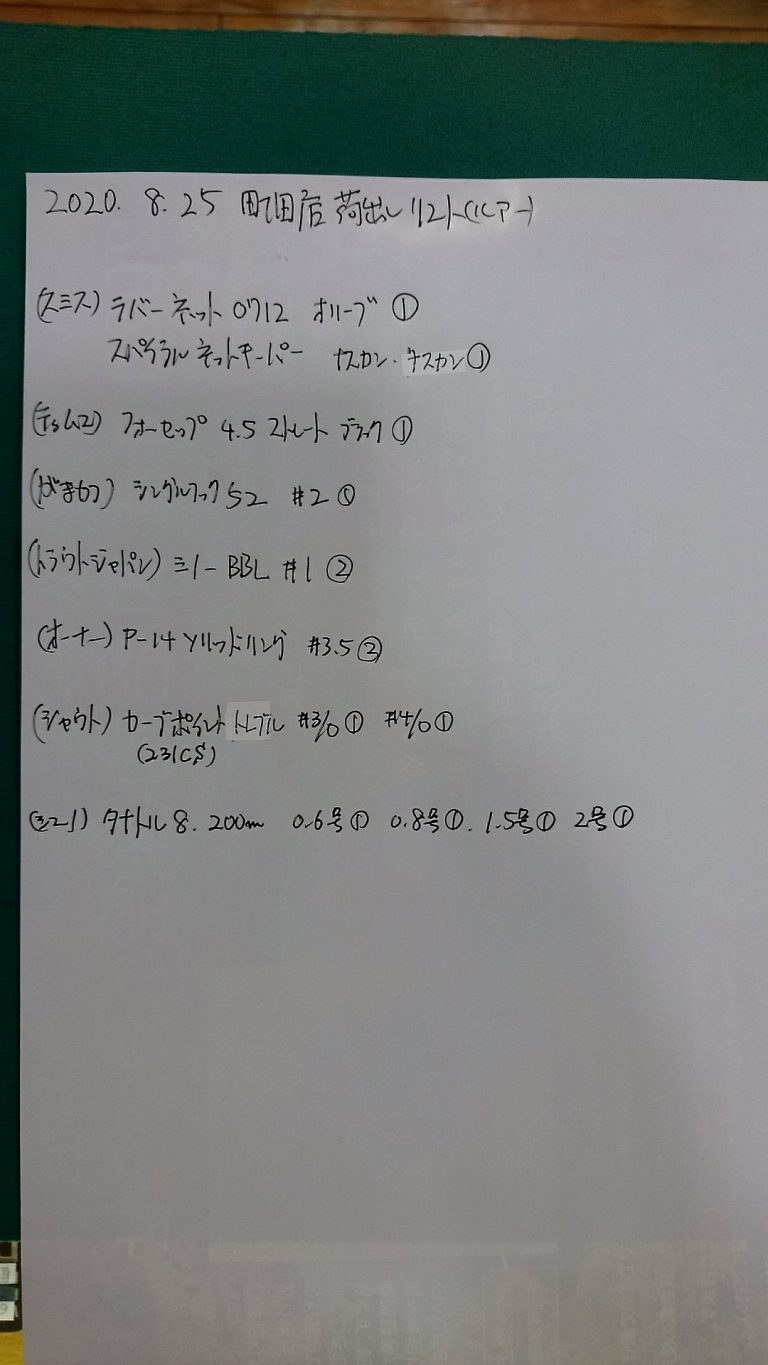 2020. 8. 25 町田店 荷出しリスト(ルアー)
(スミス) ラバーネット 0712 オリーブ ①
スパイラルネットキーパー ナスカン・ナスカン ①
(ティムコ) フォーセップ 4.5 ストレート ブラック ①
(がまかつ) シングルフック 52 #2 ①
(トラウトジャパン) ミノー BBL #1 ②
(オーナー) P-14 ソリッドリング #3.5 ②
(シャウト) カーブポイント トレブル #3/0 ① #4/0 ①
(231CS)
タナトル 8. 200m 0.6号 ① 0.8号 ①. 1.5号 ① 2号 ①